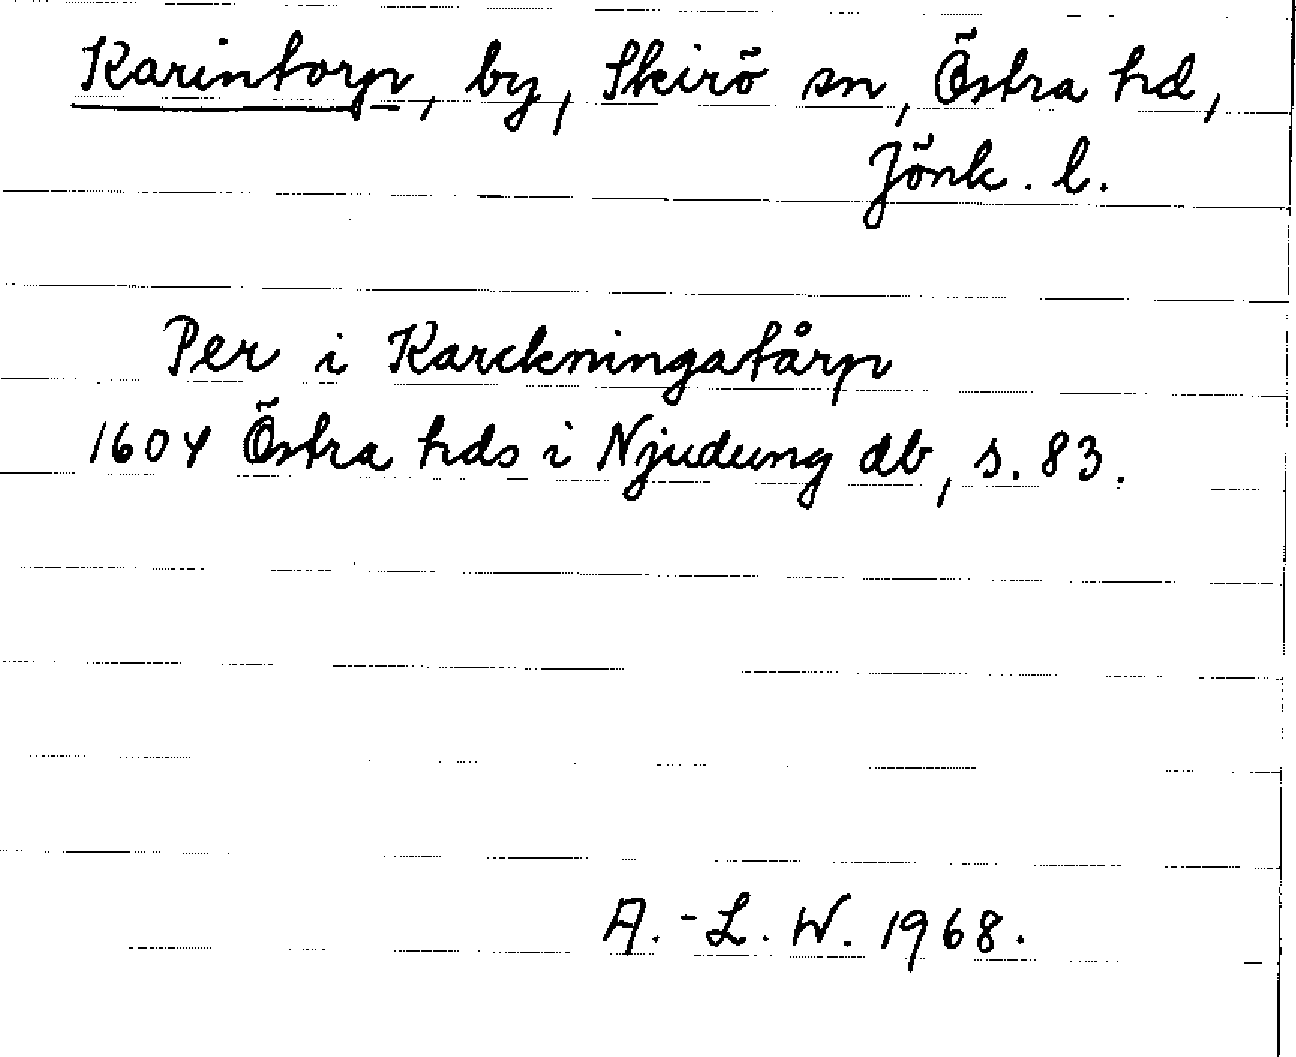 Karintorp, by, Skirö sn, Östra hd,
Jönk. l.
Per i Karckningatårp
1604 Östra hds i Njudung db, s. 83.
A.-L. W. 1968.